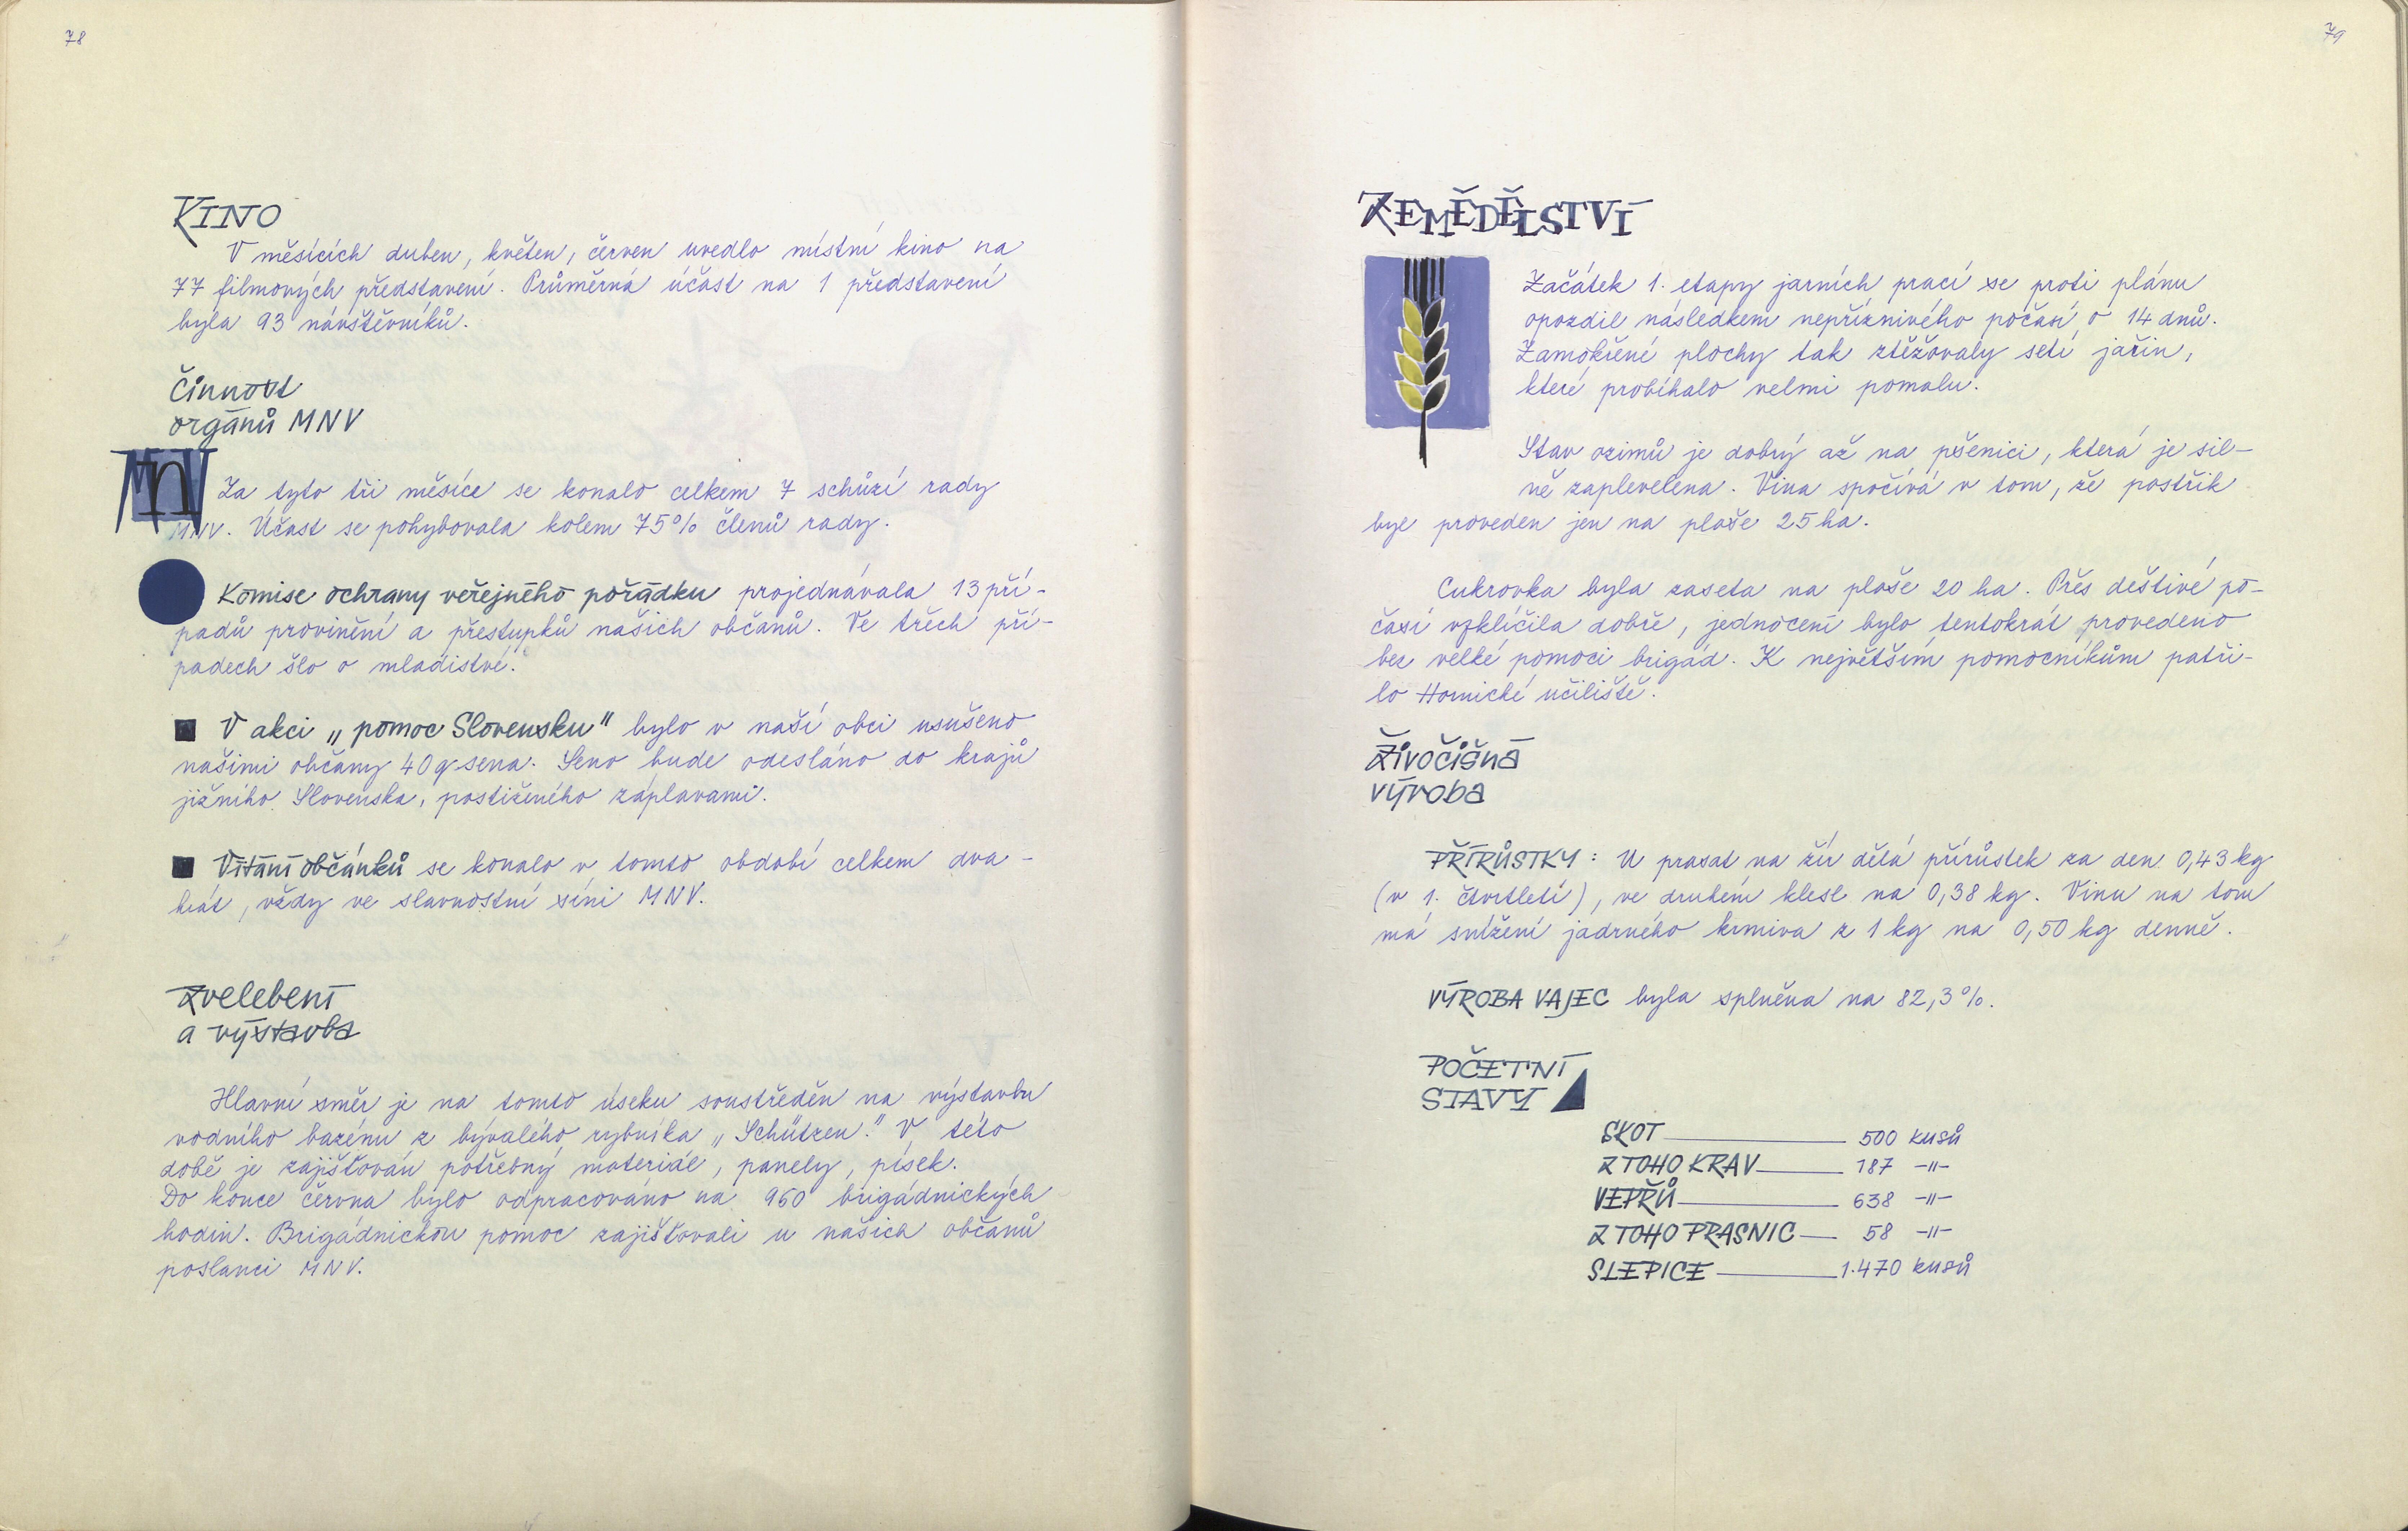 78
KINO
V měsících duben, květen, červen uvedlo místní kino na
77 filmových představení. Průměrná účast na 1 představení
byla 93 návštěvníků.
Činnost
orgánů MNV
MNV
Za tyto tři měsíce se konalo celkem 7 schůzí rady
MNV. Účast se pohybovala kolem 75% členů rady.
Komise ochrany veřejného pořádku projednávala 13 pří-
padů provinění a přestupků našich občanů. Ve třech pří-
padech šlo o mladistvé.
V akci „pomoc Slovensku" bylo v naší obci usušeno
našimi občany 40 q sena. Seno bude odesláno do krajů
jižního Slovenska, postiženého záplavami.
Vítání občánků se konalo v tomto období celkem dva-
krát, vždy ve slavnostní síni MNV.
Zvelebení
a výstavba
Hlavní směr je na tomto úseku soustředěn na výstavbu
vodního bazénu z bývalého rybníka „Schützen." V této
době je zajišťován potřebný materiál, panely, písek.
Do konce června bylo odpracováno na 960 brigádnických
hodin. Brigádnickou pomoc zajišťovali u našich občanů
poslanci MNV.
79
ZEMĚDĚLSTVÍ
Začátek 1. etapy jarních prací se proti plánu
opozdil následkem nepříznivého počasí o 14 dnů.
Zamokřené plochy tak ztěžovaly setí jařin,
které probíhalo velmi pomalu.
Stav ozimů je dobrý až na pšenici, která je sil-
ně zaplevelena. Vina spočívá v tom, že postřik
byl proveden jen na ploše 25 ha.
Cukrovka byla zaseta na ploše 20 ha. Přes deštivé po-
časí vzklíčila dobře, jednocení bylo tentokrát provedeno
bez velké pomoci brigád. K největším pomocníkům patři-
lo Hornické učiliště.
Živočišná
výroba
PŘÍRŮSTKY: U prasat na žír dělá přírůstek za den 0,43 kg
(v 1. čtvrtletí), ve druhém klesl na 0,38 kg. Vinu na tom
má snížení jadrného krmiva z 1 kg na 0,50 kg denně.
VÝROBA VAJEC byla splněna na 82,3%.
POČETNÍ
STAVY
SKOT 500 kusů
Z TOHO KRAV 187 -"-
VEPŘŮ 638 -"-
Z TOHO PRASNIC 58 -"-
SLEPICE 1.470 kusů